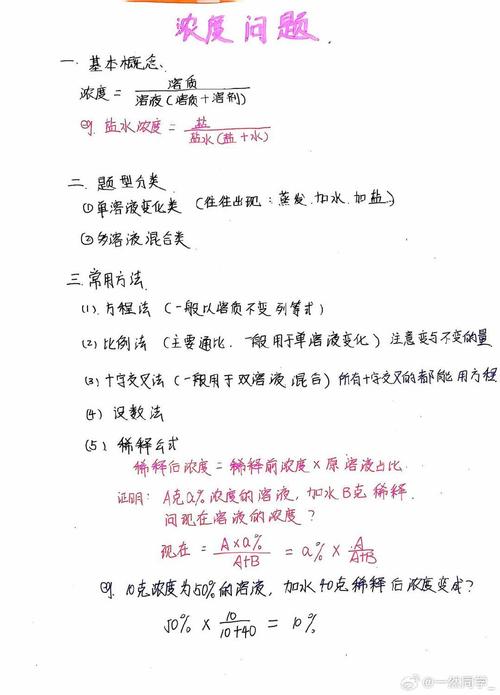 浓度问题
一. 基本概念.
浓度 = 溶质 / 溶液(溶质+溶剂)
eg. 盐水浓度 = 盐 / 盐水(盐+水)
二. 题型分类
(1)单溶液变化类 (往往出现：蒸发.加水.加盐.)
(2)多溶液混合类
三. 常用方法
(1). 方程法 (一般以溶质不变列等式)
(2) 比例法 (主要通比. 一般用于单溶液变化) 注意变与不变的量
(3) 十字交叉法 (一般用于双溶液混合) 所有十字交叉的都能用方程
(4) 设数法
(5) 稀释公式
稀释后浓度 = 稀释前浓度 × 原溶液占比.
证明: A克a%浓度的溶液, 加水B克稀释.
问现在溶液的浓度?
现在 = A×a% / A+B = a% × A / A+B
eg. 10克浓度为50%的溶液, 加水40克稀释后浓度变成?
50% × 10 / 10+40 = 10%
@一然同学_